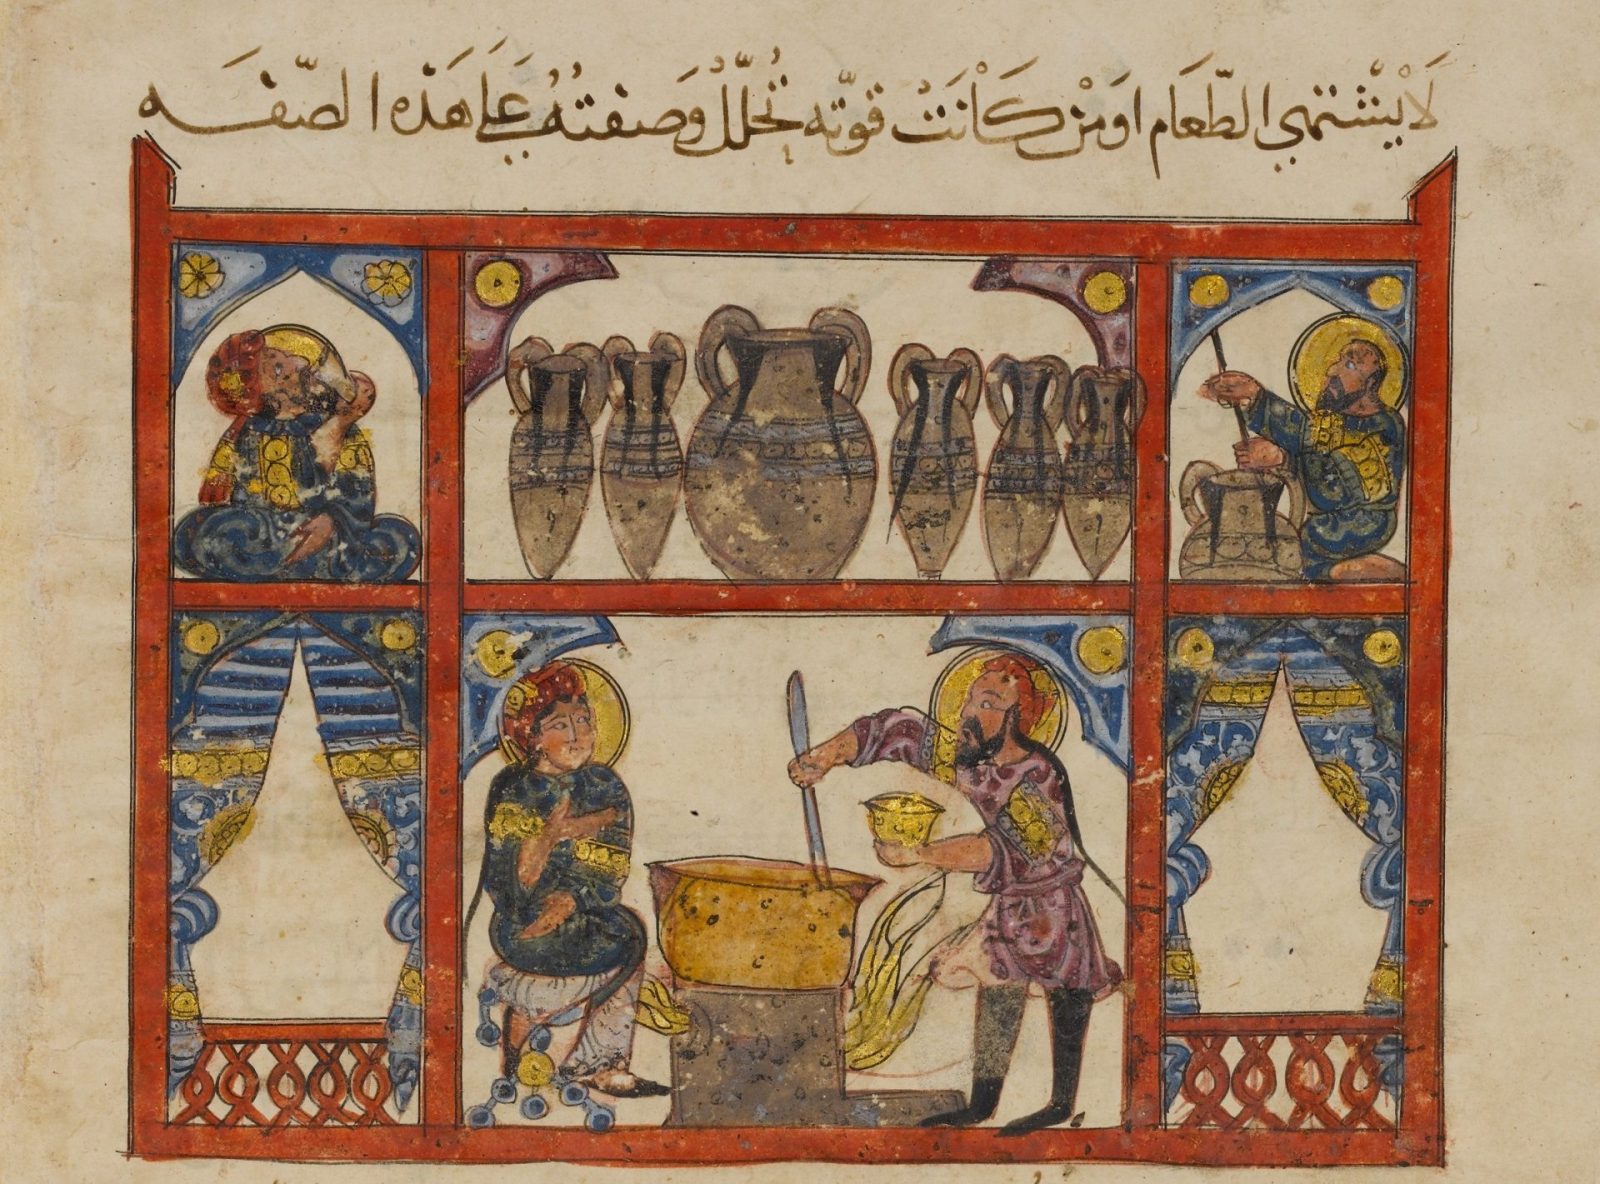 لَاْ يشتهي الطّعَام اوَمنْ كَاْنَتْ قوّته تُحلّلُ وَصفتهُ عَلَي هَذه الصّفَه